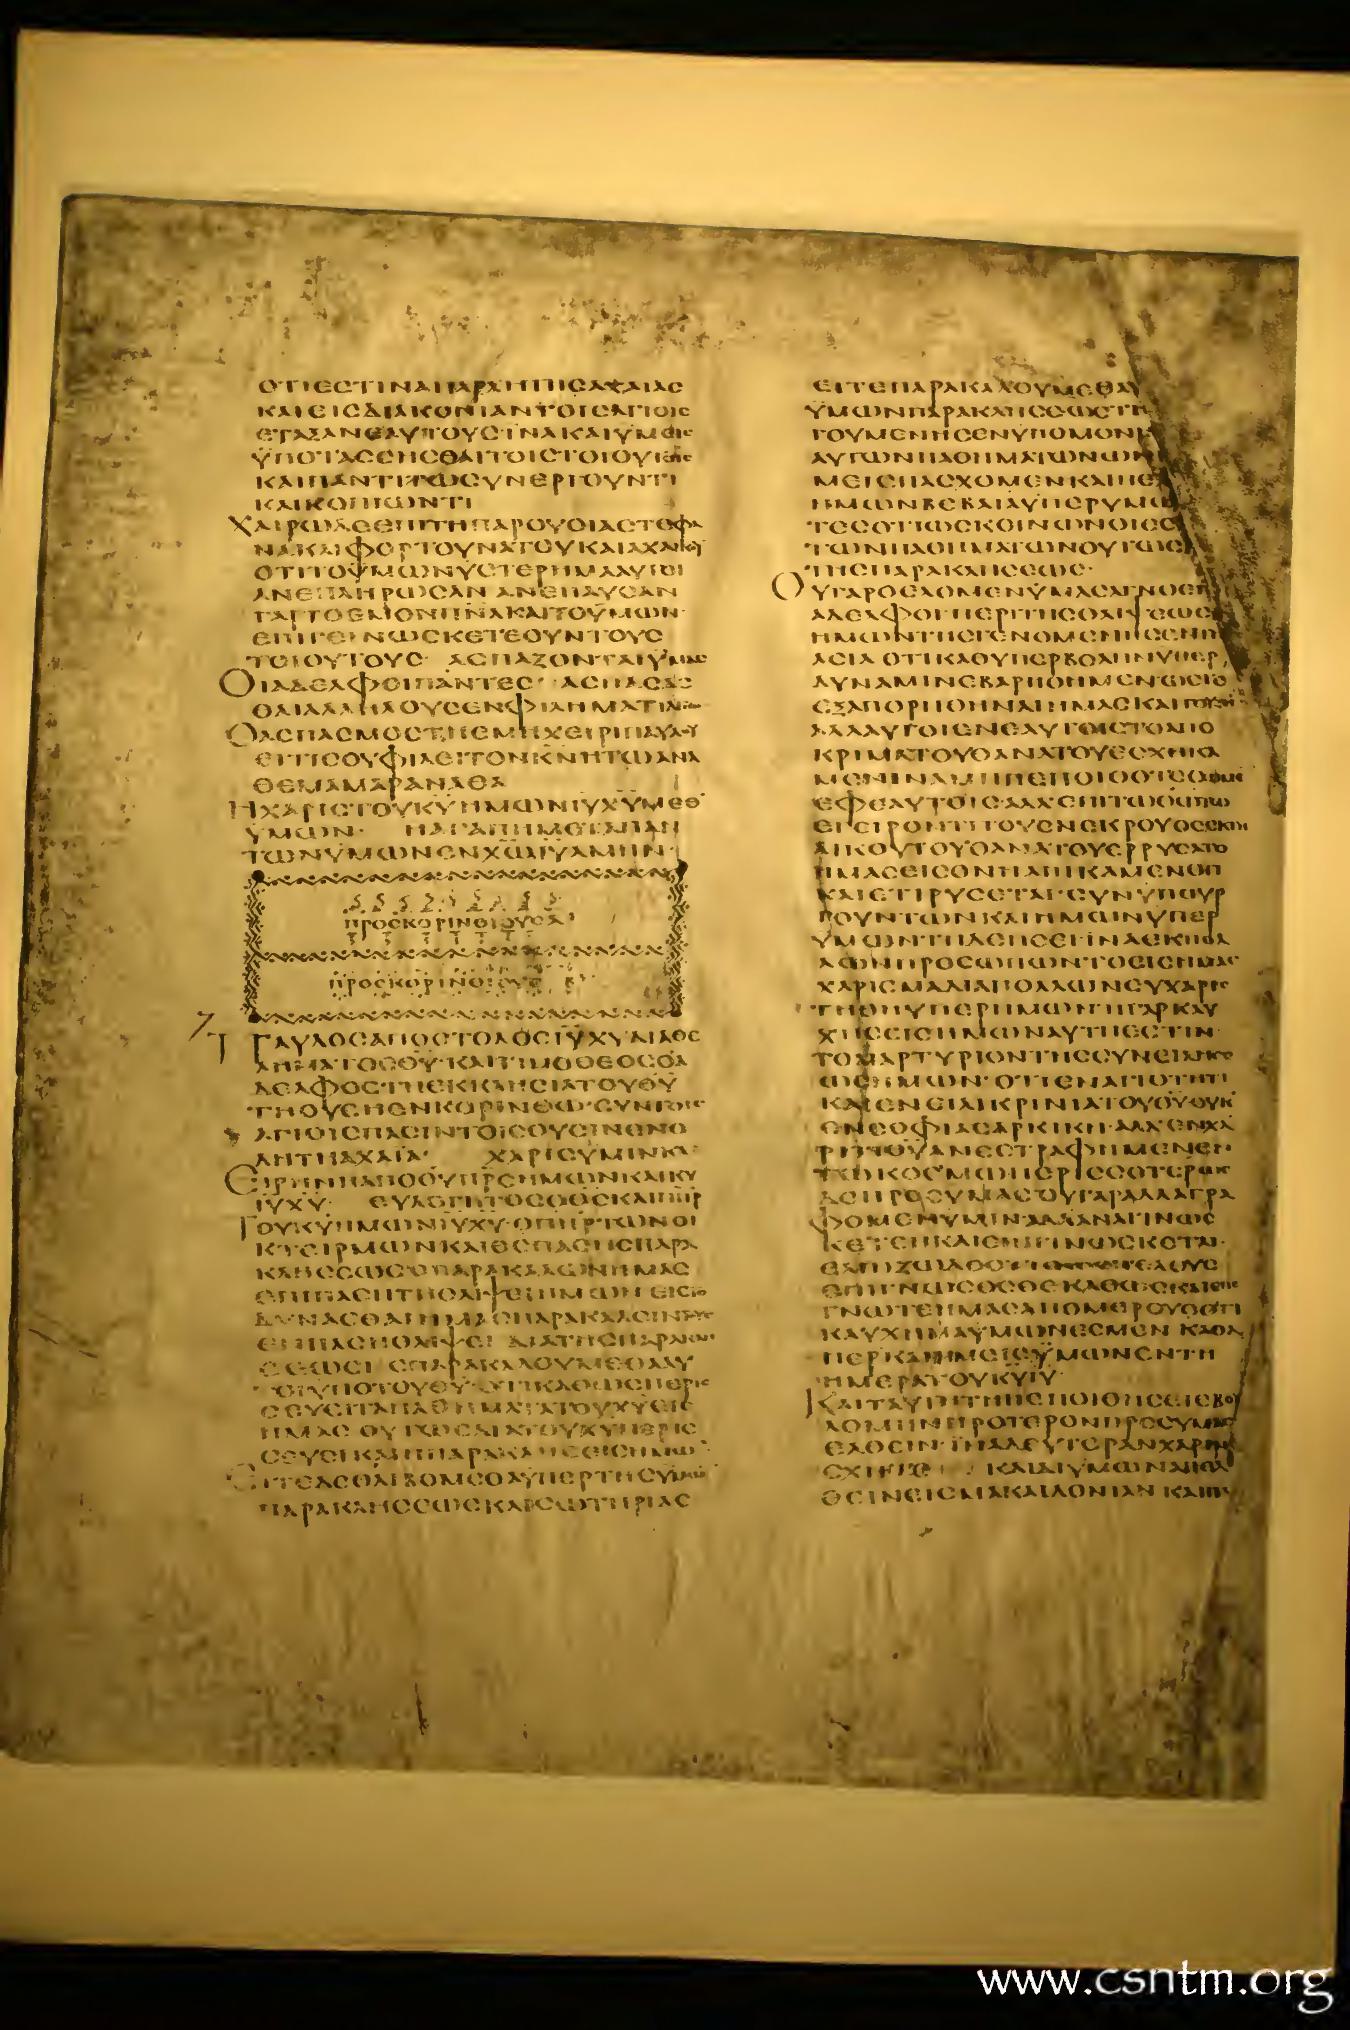 ΟΤΙΕCΤΙΝΑΠΑΡΧΗΤΗCΑΧΑΙΑC
ΚΑΙΕΙCΔΙΑΚΟΝΙΑΝΤΟΙCΑΓΙΟΙC
ΕΤΑΞΑΝΕΑΥΤΟΥC·ΪΝΑΚΑΙΥΜΕΙC
ΫΠΟΤΑCCΗCΘΑΙΤΟΙCΤΟΙΟΥΤΟΙC
ΚΑΙΠΑΝΤΙΤΩCΥΝΕΡΓΟΥΝΤΙ
ΚΑΙΚΟΠΙΩΝΤΙ
ΧΑΙΡΩΔΕΕΠΙΤΗΠΑΡΟΥCΙΑCΤΕΦΑ
ΝΑΚΑΙΦΟΡΤΟΥΝΑΤΟΥΚΑΙΑΧΑΙΚΟΥ
ΟΤΙΤΟΫΜΩΝΥCΤΕΡΗΜΑΑΥΤΟΙ
ΑΝΕΠΛΗΡΩCΑΝ ΑΝΕΠΑΥCΑΝ
ΓΑΡΤΟΕΜΟΝΠΝΑΚΑΙΤΟΫΜΩΝ·
ΕΠΙΓΕΙΝΩCΚΕΤΕΟΥΝΤΟΥC
ΤΟΙΟΥΤΟΥC· ΑCΠΑΖΟΝΤΑΙΫΜΑC
ΟΙΑΔΕΛΦΟΙΠΑΝΤΕC· ΑCΠΑCΑC
ΘΑΙΑΛΛΗΛΟΥCΕΝΦΙΛΗΜΑΤΙΑΓΙΩ
ΟΑCΠΑCΜΟCΤΗΕΜΗΧΕΙΡΙΠΑΥΛΟΥ
ΕΙΤΙCΟΥΦΙΛΕΙΤΟΝΚΝΗΤΩΑΝΑ
ΘΕΜΑΜΑΡΑΝΑΘΑ
ΗΧΑΡΙCΤΟΥΚΥΗΜΩΝΙΥΧΥΜΕΘ
ΥΜΩΝ· ΗΑΓΑΠΗΜΟΥΜΕΤΑΠΑΝ
ΤΩΝΥΜΩΝΕΝΧΩΙΥΑΜΗΝ·
ΠΡΟCΚΟΡΙΝΘΙΟΥCΑ
ΠΡΟCΚΟΡΙΝΘΙΟΥC Β
ΠΑΥΛΟCΑΠΟCΤΟΛΟCΙΥΧΥΔΙΑΘΕ
ΛΗΜΑΤΟCΘΥ·ΚΑΙΤΙΜΟΘΕΟCΟΑ
ΔΕΛΦΟCΤΗΕΚΚΛΗCΙΑΤΟΥΘΥ
ΤΗΟΥCΗΕΝΚΟΡΙΝΘΩ·CΥΝΤΟΙC
ΑΓΙΟΙCΠΑCΙΝΤΟΙCΟΥCΙΝΕΝΟ
ΛΗΤΗΑΧΑΪΑ· ΧΑΡΙCΥΜΙΝΚΑΙ
ΕΙΡΗΝΗΑΠΟΘΥΠΡCΗΜΩΝΚΑΙΚΥ
ΙΥΧΥ· ΕΥΛΟΓΗΤΟCΟΘCΚΑΙΠΗΡ
ΤΟΥΚΥΗΜΩΝΙΥΧΥ·ΟΠΗΡΤΩΝΟΙ
ΚΤΕΙΡΜΩΝΚΑΙΘCΠΑCΗCΠΑΡΑ
ΚΛΗCΕΩC·ΟΠΑΡΑΚΑΛΩΝΗΜΑC
ΕΠΙΠΑCΗΤΗΘΛΙΨΕΙΗΜΩΝ ΕΙCΤΟ
ΔΥΝΑCΘΑΙΗΜΑCΠΑΡΑΚΑΛΕΙΝΤΟΥC
ΕΝΠΑCΗΘΛΙΨΕΙ ΔΙΑΤΗCΠΑΡΑΚΛΗ
CΕΩCΗCΠΑΡΑΚΑΛΟΥΜΕΘΑΑΥ
ΤΟΙΥΠΟΤΟΥΘΥ·ΟΤΙΚΑΘΩCΠΕΡΙC
CΕΥΕΙΤΑΠΑΘΗΜΑΤΑΤΟΥΧΥΕΙC
ΗΜΑC ΟΥΤΩCΔΙΑΤΟΥΧΥΠΕΡΙC
CΕΥΕΙΚΑΙΗΠΑΡΑΚΛΗCΕΙCΗΜΩΝ·
ΕΙΤΕΔΕΘΛΙΒΟΜΕΘΑΫΠΕΡΤΗCΥΜΩΝ
ΠΑΡΑΚΛΗCΕΩCΚΑΙCΩΤΗΡΙΑC
ΕΙΤΕΠΑΡΑΚΑΛΟΥΜΕΘΑΫ
ΫΜΩΝΠΑΡΑΚΛΗCΕΩCΤΗ
ΓΟΥΜΕΝΗCΕΝΥΠΟΜΟΝΗ
ΑΥΤΩΝΠΑΘΗΜΑΤΩΝΩΝ
ΜΕΙCΠΑCΧΟΜΕΝΚΑΙΗΕ
ΗΜΩΝΒΕΒΑΙΑΥΠΕΡΥΜΩ
ΤΕCΟΤΙΩCΚΟΙΝΩΝΟΙΕC
ΤΩΝΠΑΘΗΜΑΤΩΝΟΥΤΩC
ΤΗCΠΑΡΑΚΛΗCΕΩC·
ΟΥΓΑΡΘΕΛΟΜΕΝΫΜΑCΑΓΝΟΕΙ
ΑΔΕΛΦΟΙΠΕΡΙΤΗCΘΛΙΨΕΩC
ΗΜΩΝΤΗCΓΕΝΟΜΕΝΗCΕΝΤΗ
ΑCΙΑ ΟΤΙΚΑΘΥΠΕΡΒΟΛΗΝΥΠΕΡ
ΔΥΝΑΜΙΝΕΒΑΡΗΘΗΜΕΝΩCΤΕ
ΕΞΑΠΟΡΗΘΗΝΑΙΗΜΑCΚΑΙΤΟΥΖΗΝ
ΑΛΛΑΥΤΟΙΕΝΕΑΥΤΟΙCΤΟΑΠΟ
ΚΡΙΜΑΤΟΥΘΑΝΑΤΟΥΕCΧΗΚΑ
ΜΕΝΙΝΑΜΗΠΕΠΟΙΘΟΤΕCΩΜΕ
ΕΦΕΑΥΤΟΙC·ΑΛΛΕΠΙΤΩΘΩΤΩ
ΕΓΕΙΡΟΝΤΙΤΟΥCΝΕΚΡΟΥCΟCΕΚΤΗ
ΛΙΚΟΥΤΟΥΘΑΝΑΤΟΥΕΡΡΥCΑΤΟ
ΗΜΑCΕΙCΟΝΗΛΠΙΚΑΜΕΝΟΤΙ
ΚΑΙΕΤΙΡΥCΕΤΑΙ·CΥΝΫΠΟΥΡ
ΓΟΥΝΤΩΝΚΑΙΗΜΩΝΥΠΕΡ
ΥΜΩΝΤΗΔΕΗCΕΙΪΝΑΕΚΠΟΛ
ΛΩΝΠΡΟCΩΠΩΝΤΟΕΙCΗΜΑC
ΧΑΡΙCΜΑΔΙΑΠΟΛΛΩΝΕΥΧΑΡΙC
ΤΗΘΗΥΠΕΡΗΜΩΝ·ΗΓΑΡΚΑΥ
ΧΗCΕΙCΗΜΩΝΑΥΤΗΕCΤΙΝ·
ΤΟΜΑΡΤΥΡΙΟΝΤΗCCΥΝΕΙΔΗCΕ
ΩCΗΜΩΝ·ΟΤΙΕΝΑΓΙΟΤΗΤΙ
ΚΑΙΕΝΕΙΛΙΚΡΙΝΙΑΤΟΥΘΥΟΥΚ
ΕΝCΟΦΙΑCΑΡΚΙΚΗ·ΑΛΛΕΝΧΑ
ΡΙΤΙΘΫΑΝΕCΤΡΑΦΗΜΕΝΕΝ
ΤΩΚΟCΜΩΠΕΡΙCCΟΤΕΡΩC
ΔΕΠΡΟCΥΜΑC·ΟΥΓΑΡΑΛΛΑΓΡΑ
ΦΟΜΕΝΥΜΙΝ·ΑΛΛΑΝΑΓΙΝΩC
ΚΕΤΕΗΚΑΙΕΠΙΓΙΝΩCΚΕΤΑΙ·
ΕΛΠΙΖΩΔΕΟΤΙ ΤΕΛΟΥC
ΕΠΙΓΝΩCΕCΘΕΚΑΘΩCΚΑΙΕΠΕ
ΓΝΩΤΕΗΜΑCΑΠΟΜΕΡΟΥCΟΤΙ
ΚΑΥΧΗΜΑΥΜΩΝΕCΜΕΝ ΚΑΘΑ
ΠΕΡΚΑΙΥΜΕΙCΗΜΩΝΕΝΤΗ
ΗΜΕΡΑΤΟΥΚΥΙΥ·
ΚΑΙΤΑΥΤΗΤΗΠΕΠΟΙΘΗCΕΙΕΒΟΥ
ΛΟΜΗΝΠΡΟΤΕΡΟΝΠΡΟCΥΜΑC
ΕΛΘΕΙΝ·ΪΝΑΔΕΥΤΕΡΑΝΧΑΡΙΝ
CΧΗΤΕ ΚΑΙΔΙΥΜΩΝΑΠΕΛ
ΘΕΙΝΕΙCΜΑΚΑΙΔΟΝΙΑΝ ΚΑΙΠ
www.csntm.org